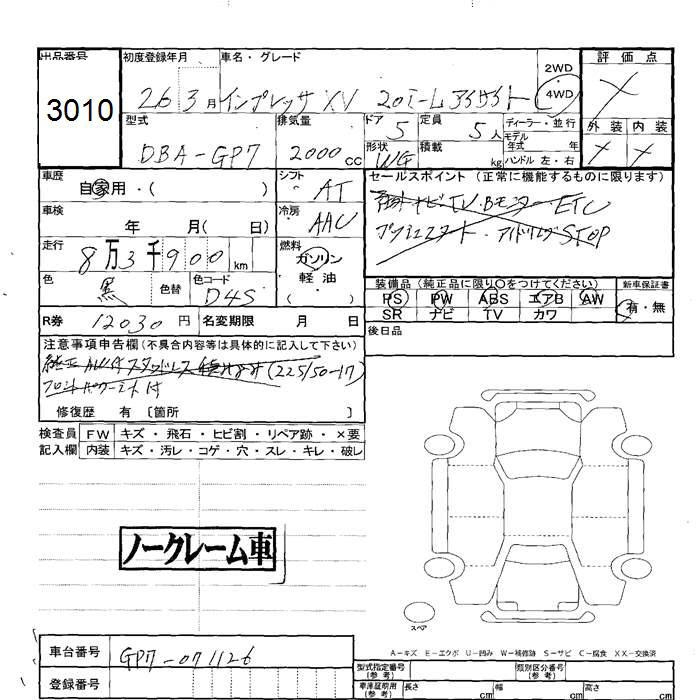 出品番号 初度登録年月 車名・グレード 2WD ・ 4WD 評価点
3010 26 3月 インプレッサ XV 20i-L アイサイト
型式 排気量 ドア 5 定員 5人 ディーラー・並行 外装 内装
DBA-GP7 2000cc 形状 WG 積載 kg モデル年式 年
ハンドル 左・右
車歴 自家用・( ) シフト AT セールスポイント (正常に機能するものに限ります)
車検 年 月( 日) 冷房 AAC ナビ TV・Bモニター ETC
プッシュスタート・アイドリングSTOP
走行 8万3千900km 燃料 ガソリン・軽油
色 黒 色替 色コード D4S 装備品(純正品に限り○をつけてください) 新車保証書
PS PW ABS エアB AW 有・無
SR ナビ TV カワ
R券 12030円 名変期限 月 日 後日品
注意事項申告欄(不具合内容等は具体的に記入して下さい)
純正AWスタッドレス (225/50-17)
付
修復歴 有 〔箇所 〕
検査員 FW キズ・飛石・ヒビ割・リペア跡・×要
記入欄 内装 キズ・汚レ・コゲ・穴・スレ・キレ・破レ
ノークレーム車
スペア
A-キズ E-エクボ U-凹み W-補修跡 S-サビ C-腐食 XX-交換済
車台番号 GP7-071126
登録番号
型式指定番号(参考) 類別区分番号(参考)
車庫証明用(参考) 長さ cm 幅 cm 高さ cm